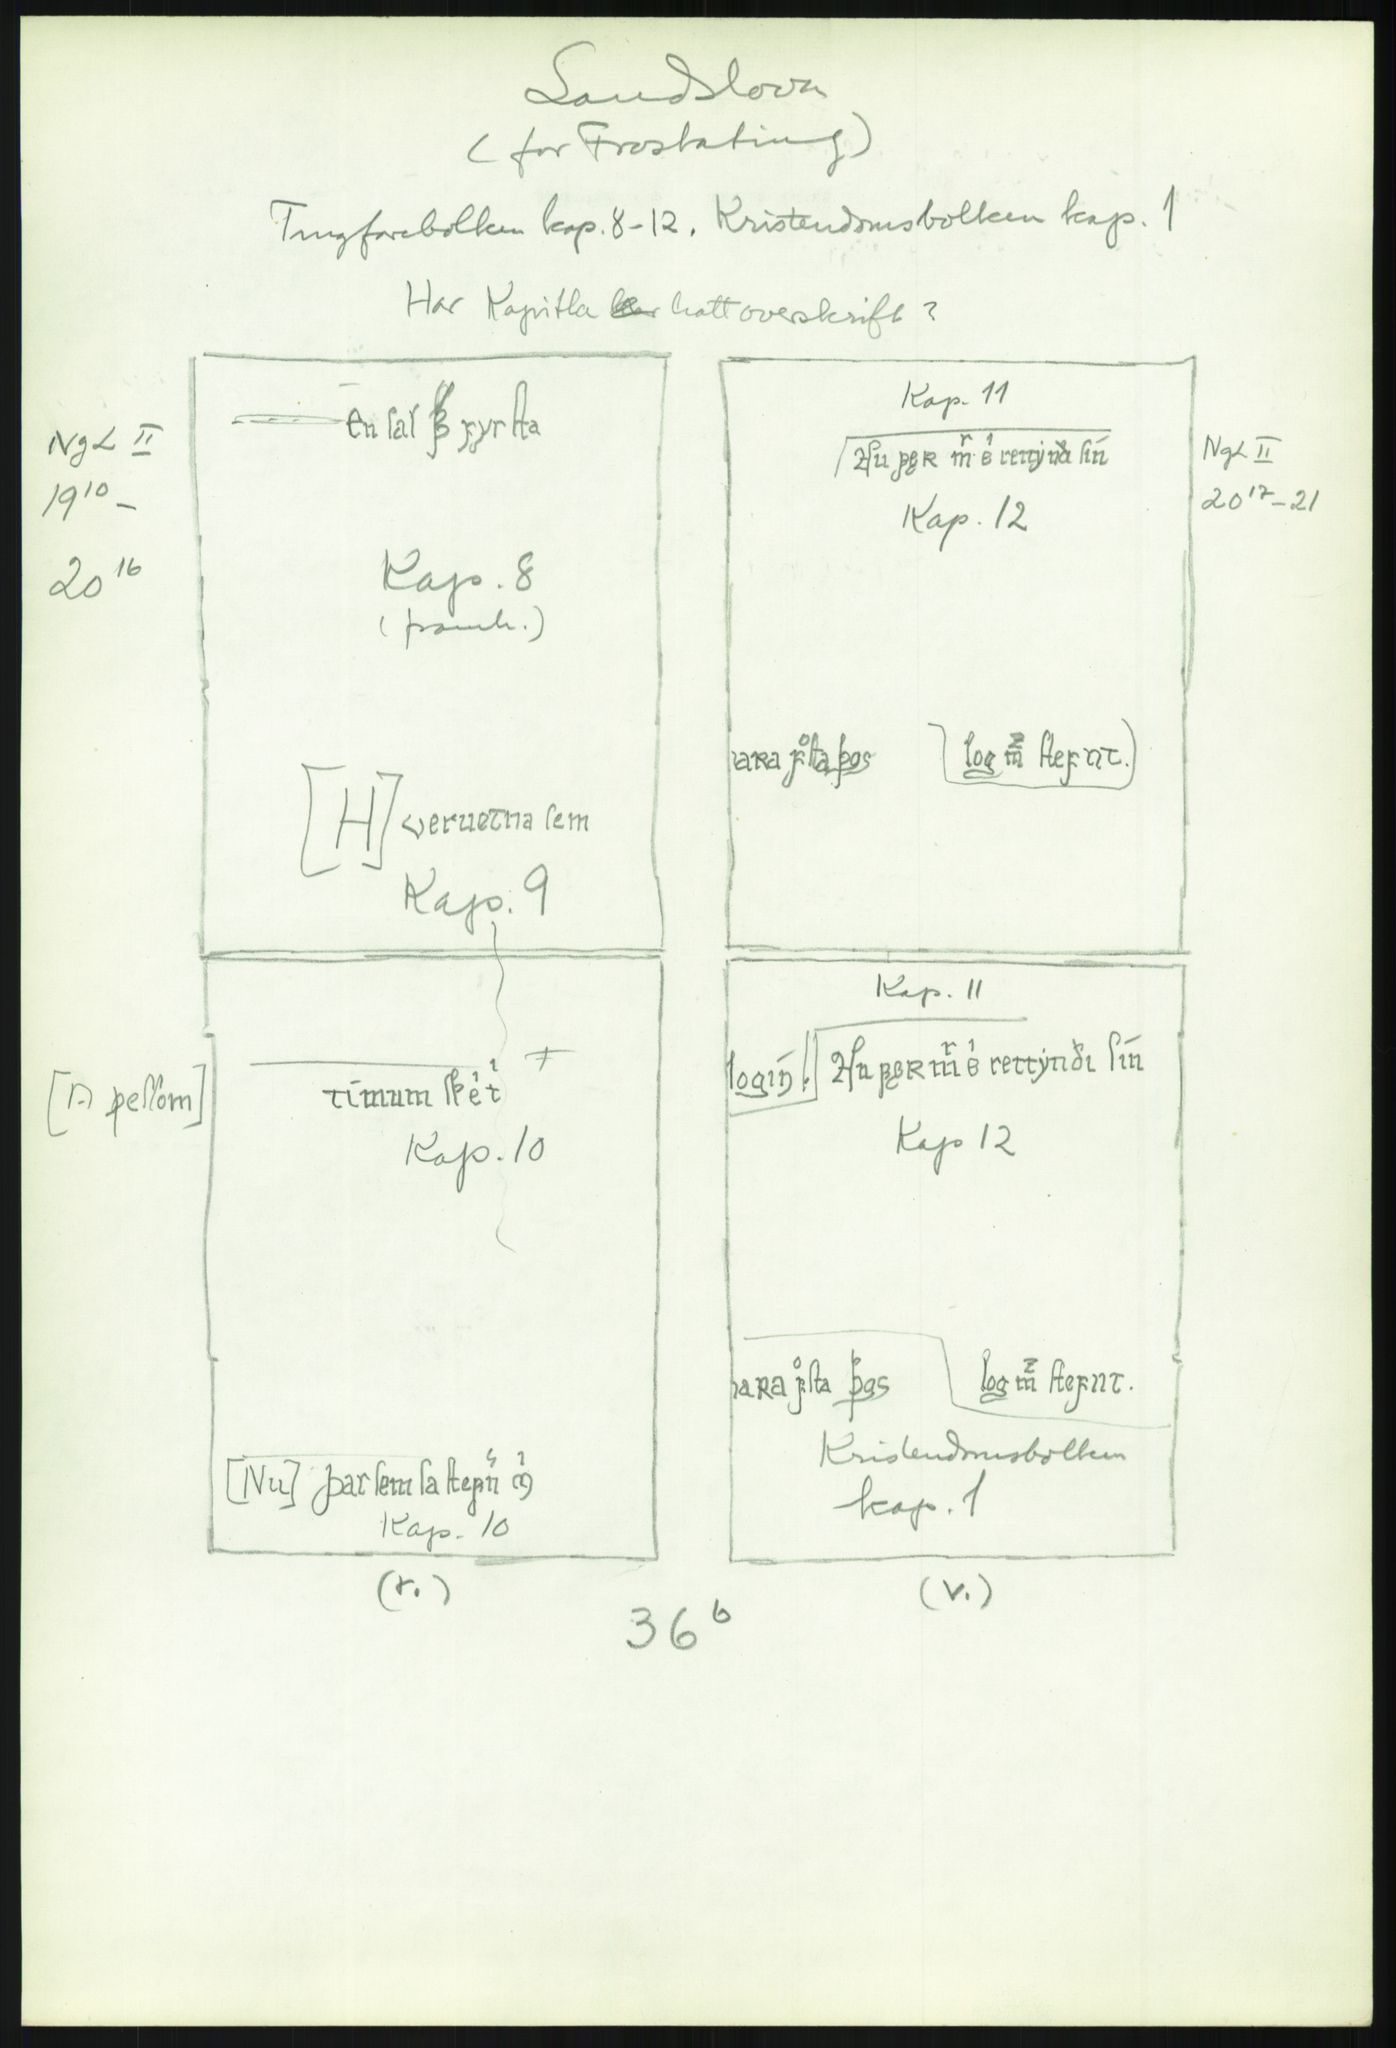 Landslova
(for Frostating)
Tingfarebolken kap. 8-12. Kristendomsbolken kap. 1
Har Kapitla hatt overskrift?
NgL II
19¹⁰ -
20¹⁶
en ſal ꝥ fyrſta
Kap. 8
[H] veruetna ſem
Kap. 9
[A þeſſom]
timum ſk e t
Kap. 10
[Nu] þar ſem ſa ſtefn
Kap. 10
(r.)
Kap. 11
Nu þeR m̄ e rettynde ſin
Kap. 12
NgL II
20¹⁷-21
vara fſta þgs log m̄ ſtefnt.
Kap. 11
login. Nu þeR m̄ e rettyndi ſin
Kap 12
vara fſta þgs log m̄ ſtefnt.
Kristendomsbolken
kap. 1
(v.)
36ᵇ